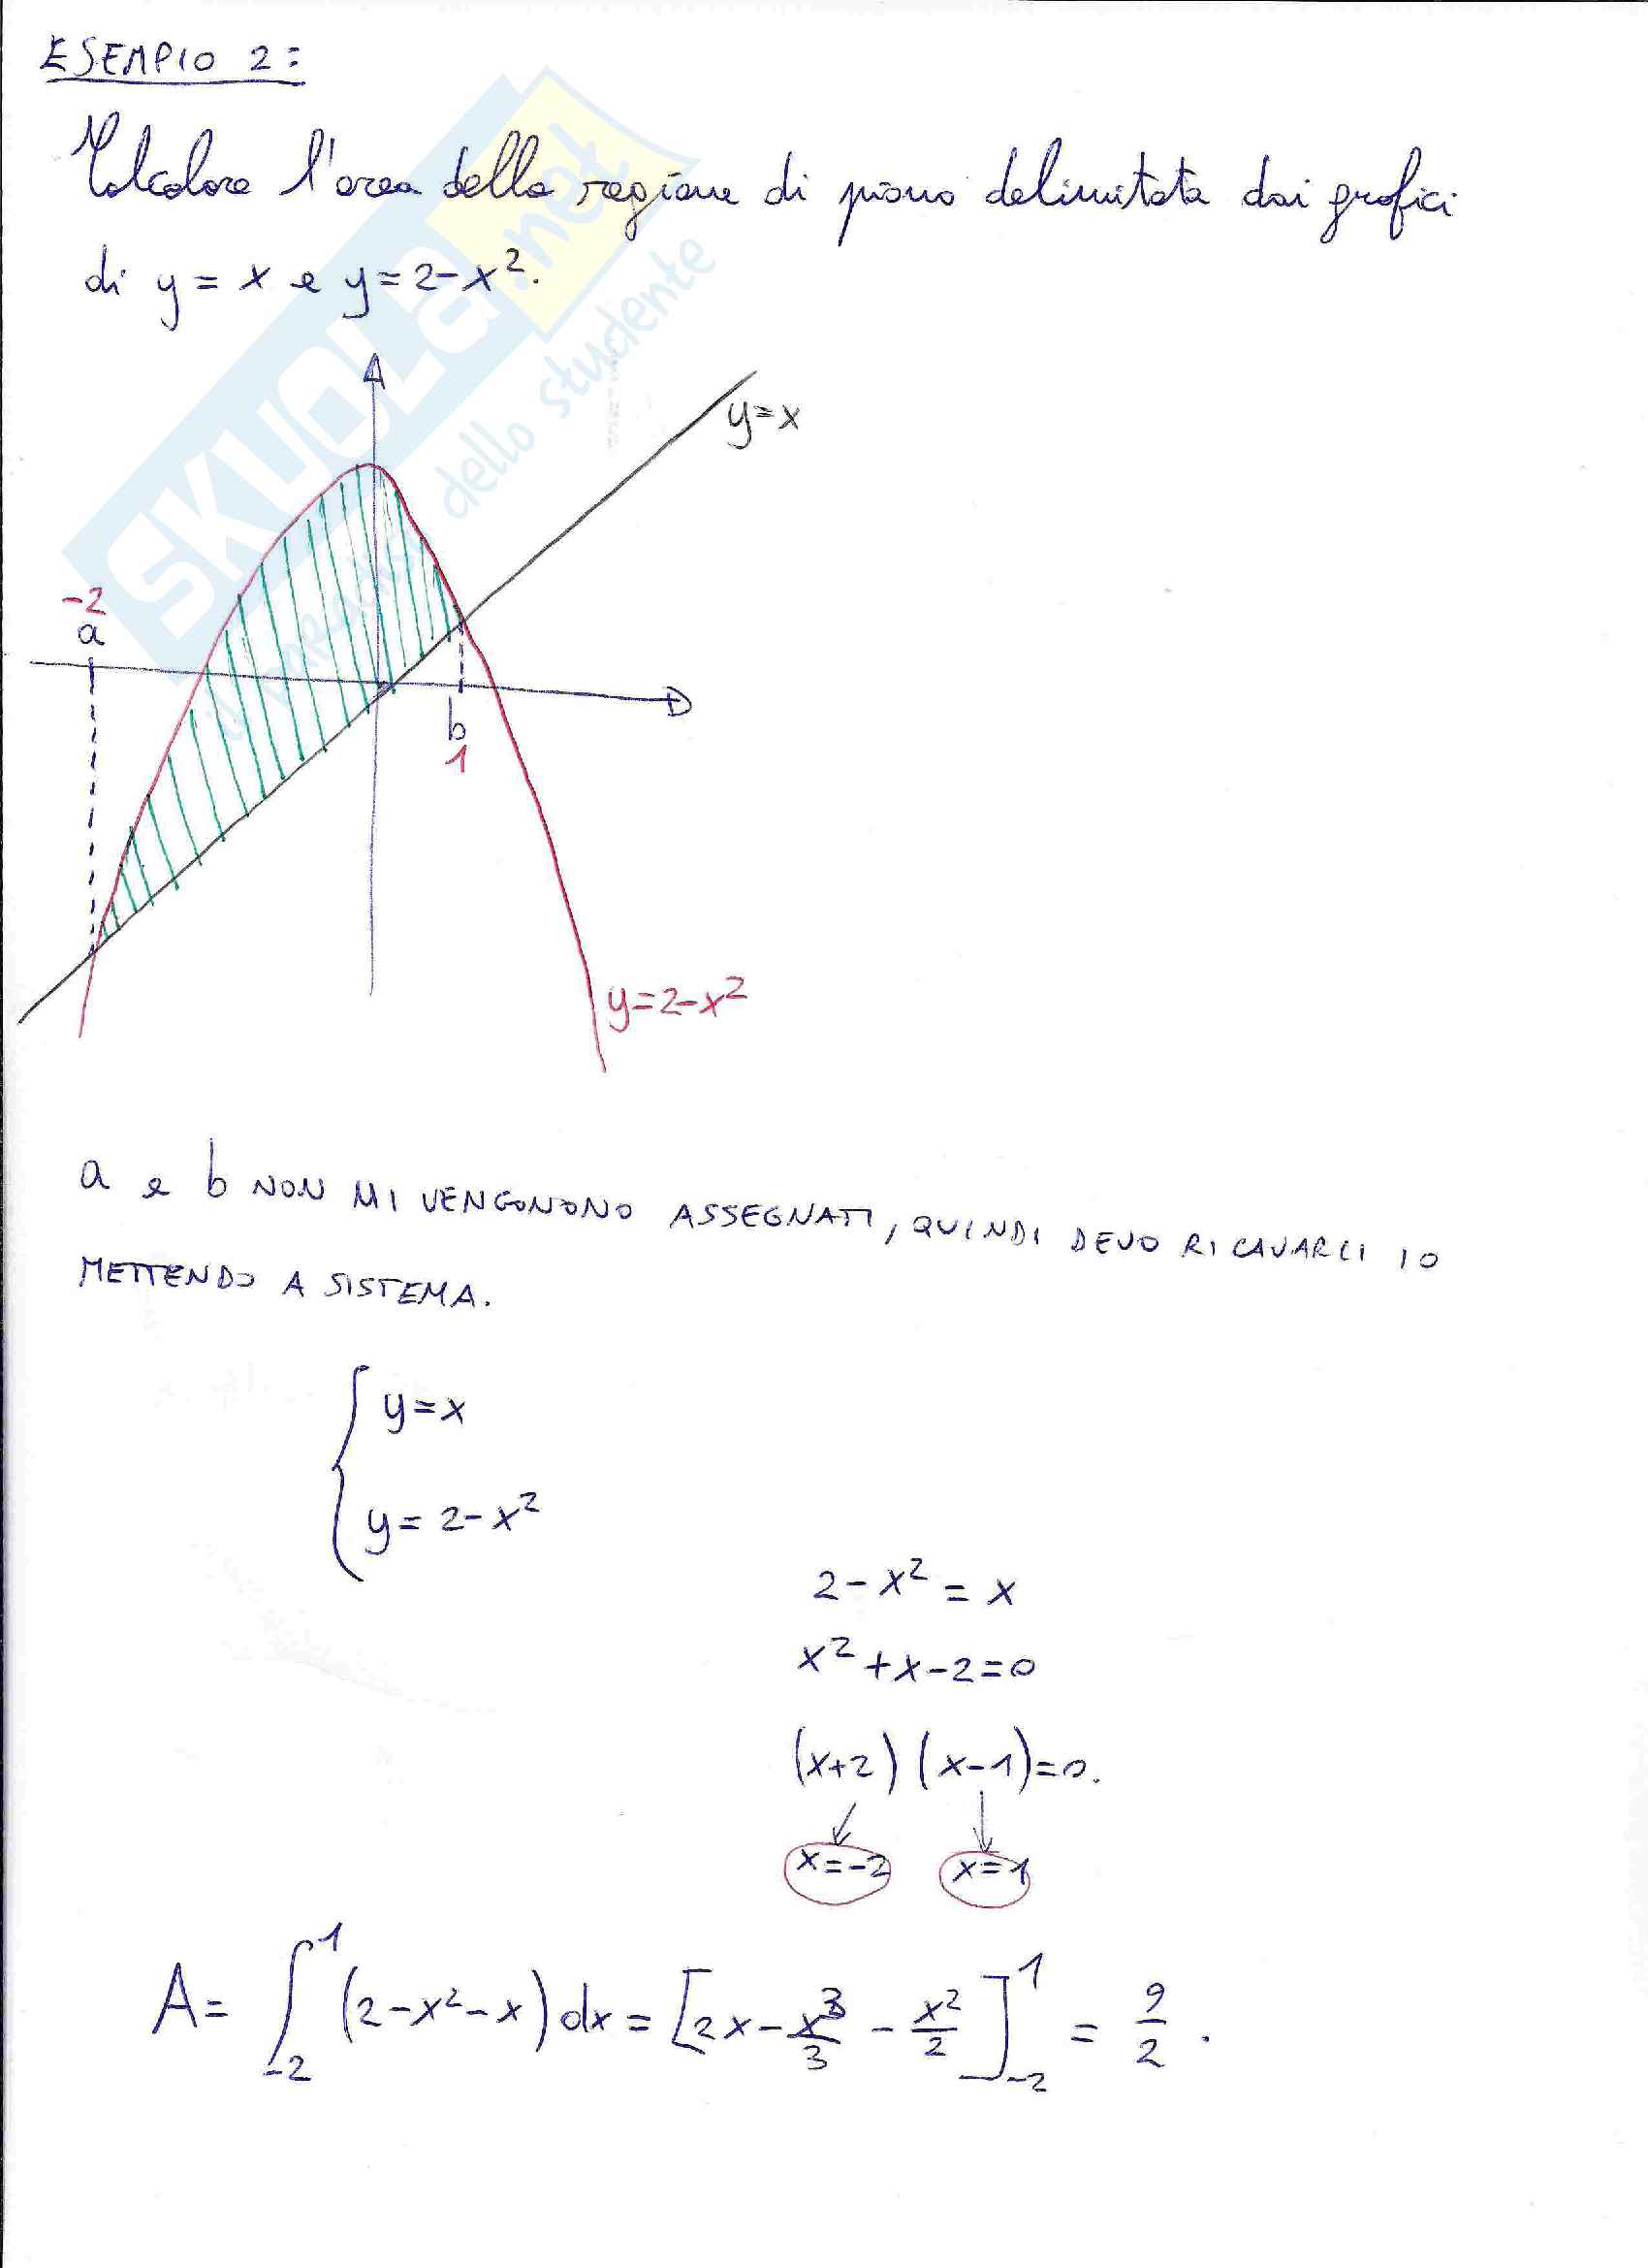 ESEMPIO 2:
Calcolare l'area della regione di piano delimitata dai grafici
di y = x e y = 2-x².
SKUOLA.net
dello studente
y=x
-2
a
b
1
y=2-x²
a e b NON MI VENGONONO ASSEGNATI, QUINDI DEVO RICAVARCI IO
METTENDO A SISTEMA.
{ y=x
y = 2-x²
2-x² = x
x²+x-2=0
(x+2)(x-1)=0.
x=-2 x=1
A = ∫₋₂¹ (2-x²-x) dx = [2x - x³/3 - x²/2]₋₂¹ = 9/2 .